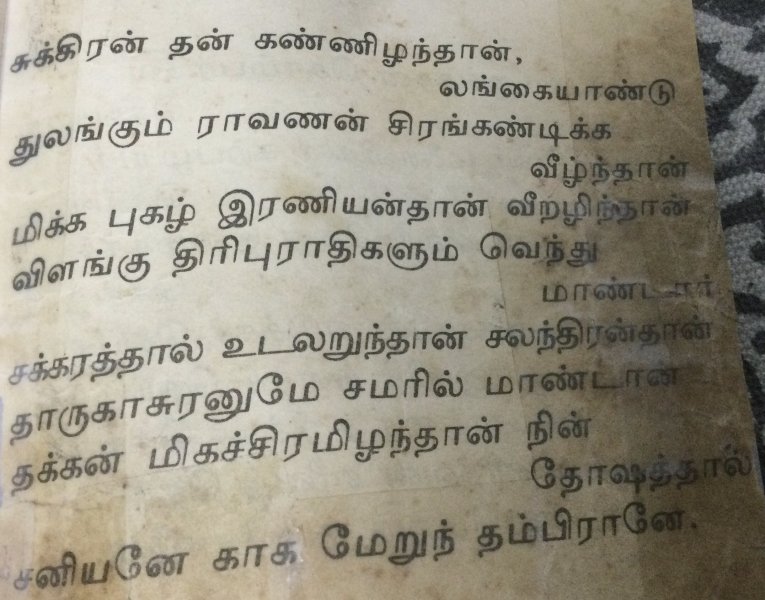 சுக்கிரன் தன் கண்ணிழந்தான்,
லங்கையாண்டு
துலங்கும் ராவணன் சிரங்கண்டிக்க
வீழ்ந்தான்
மிக்க புகழ் இரணியன்தான் வீறழிந்தான்
விளங்கு திரிபுராதிகளும் வெந்து
மாண்டார்
சக்கரத்தால் உடலறுந்தான் சலந்திரன்தான்
தாருகாசுரனுமே சமரில் மாண்டான்
தக்கன் மிகச்சிரமிழந்தான் நின்
தோஷத்தால்
சனியனே காக மேறுந் தம்பிரானே.